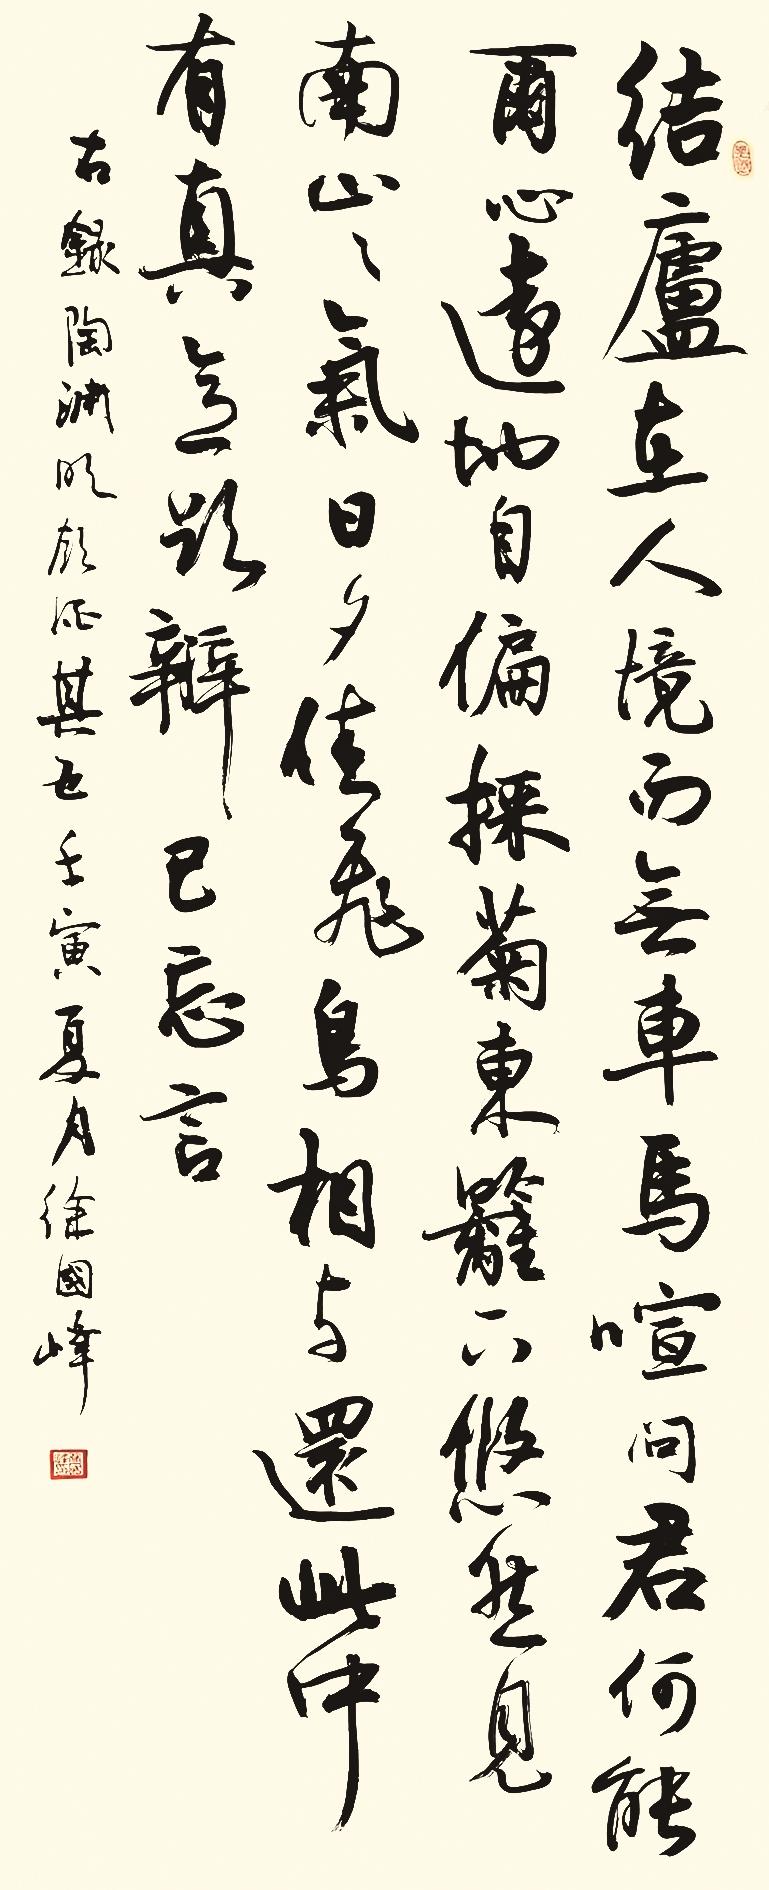 結廬在人境而無車馬喧問君何能
爾心遠地自偏採菊東籬下悠然見
南山〻氣日夕佳飛鳥相與還此中
有真意欲辯已忘言
右錄陶淵明飲酒其五壬寅夏月徐國峰